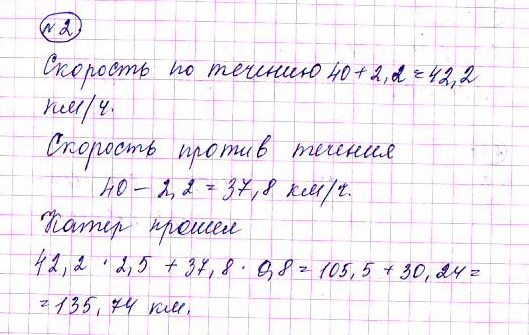 № 2.
Скорость по течению 40 + 2,2 = 42,2
км/ч.
Скорость против течения
40 - 2,2 = 37,8 км/ч.
Катер прошел
42,2 · 2,5 + 37,8 · 0,8 = 105,5 + 30,24 =
= 135,74 км.